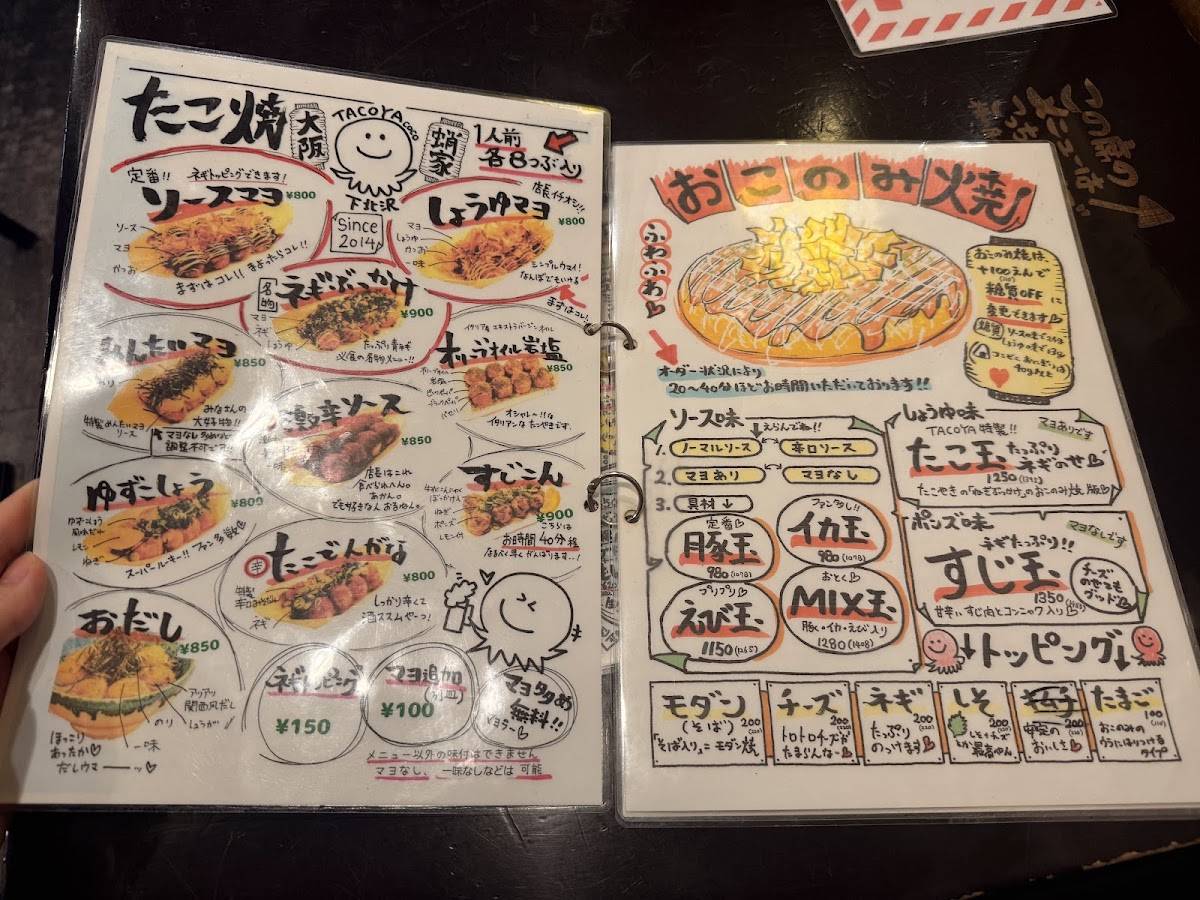 たこ焼
大阪
TACOYA coco
蛸家
1人前
各8つぶ入り
下北沢
Since
2014
定番!! ネギトッピングできます!
ソースマヨ ¥800
ソース
マヨ
かつお
まずはコレ!! まよったらコレ!!
店長イチオシ!!
しょうゆマヨ ¥800
マヨ
しょうゆ
かつお
一味
シンプルウマイ!
なんぼでもいける
まずはコレ!
名物
ネギぶっかけ ¥900
マヨ
ネギ
しょうゆ
たっぷり青ネギ
必食の名物メニュー!!
めんたいマヨ ¥850
特製めんたいマヨ
ソース
みなさんの
大好物!!
オリーブオイル岩塩 ¥850
オリーブオイル
岩塩
パセリ
オシャレー!!な
イタリアンなたこやきです。
激辛ソース ¥850
店長はこれ
食べられへん。
あかん。
でも好きなん おるねん。
ゆずこしょう ¥800
ゆずこしょう
レモン
ねぎ
スーパールーキー!! ファン多数
すじこん ¥900
ねぎ
ポンズ
レモン付
こちらは
お時間40分程
辛
たこでんがな ¥800
ネギ
しっかり辛くて
酒ススムやーつ!
おだし ¥850
アツアツ
関西風だし
しょうが
のり
一味
ほっこり
あったか♡
だしウマーーッ♡
ネギトッピング
¥150
マヨ追加
(別皿)
¥100
マヨ多め
無料!!
メニュー以外の味付はできません
マヨなし、一味なしなどは可能
おこのみ焼
ふわふわ
おこのみ焼は、
+100えんで
糖質OFFに
変更できます
糖質
オーダー状況により
20〜40分ほどお時間いただいております!!
ソース味
えらんでね!!
1. ノーマルソース 辛口ソース
2. マヨあり マヨなし
3. 具材↓
定番♡
豚玉
980(1078)
ファン多し!!
イカ玉
980(1078)
プリプリ♡
えび玉
1150(1265)
おとく♡
MIX玉
豚・イカ・えび入り
1280(1408)
しょうゆ味
マヨありです
TACOYA特製!!
たこ玉 たっぷり
ネギのせ♡
1250
たこやきの「ねぎぶっかけ」のおこのみ焼版♡
ポンズ味
マヨなしです
ネギたっぷり!!
すじ玉
1350
甘辛いすじ肉とコンニャク入り
チーズ
のせても
グッド♡
↓トッピング↓
モダン
(そば) 200
「そば入り」=モダン焼
チーズ
200
トロトロチーズが
たまらんなー
ネギ
200
たっぷり
のっけます♡
しそ
200
たまご
100
おこのみの
タイプ